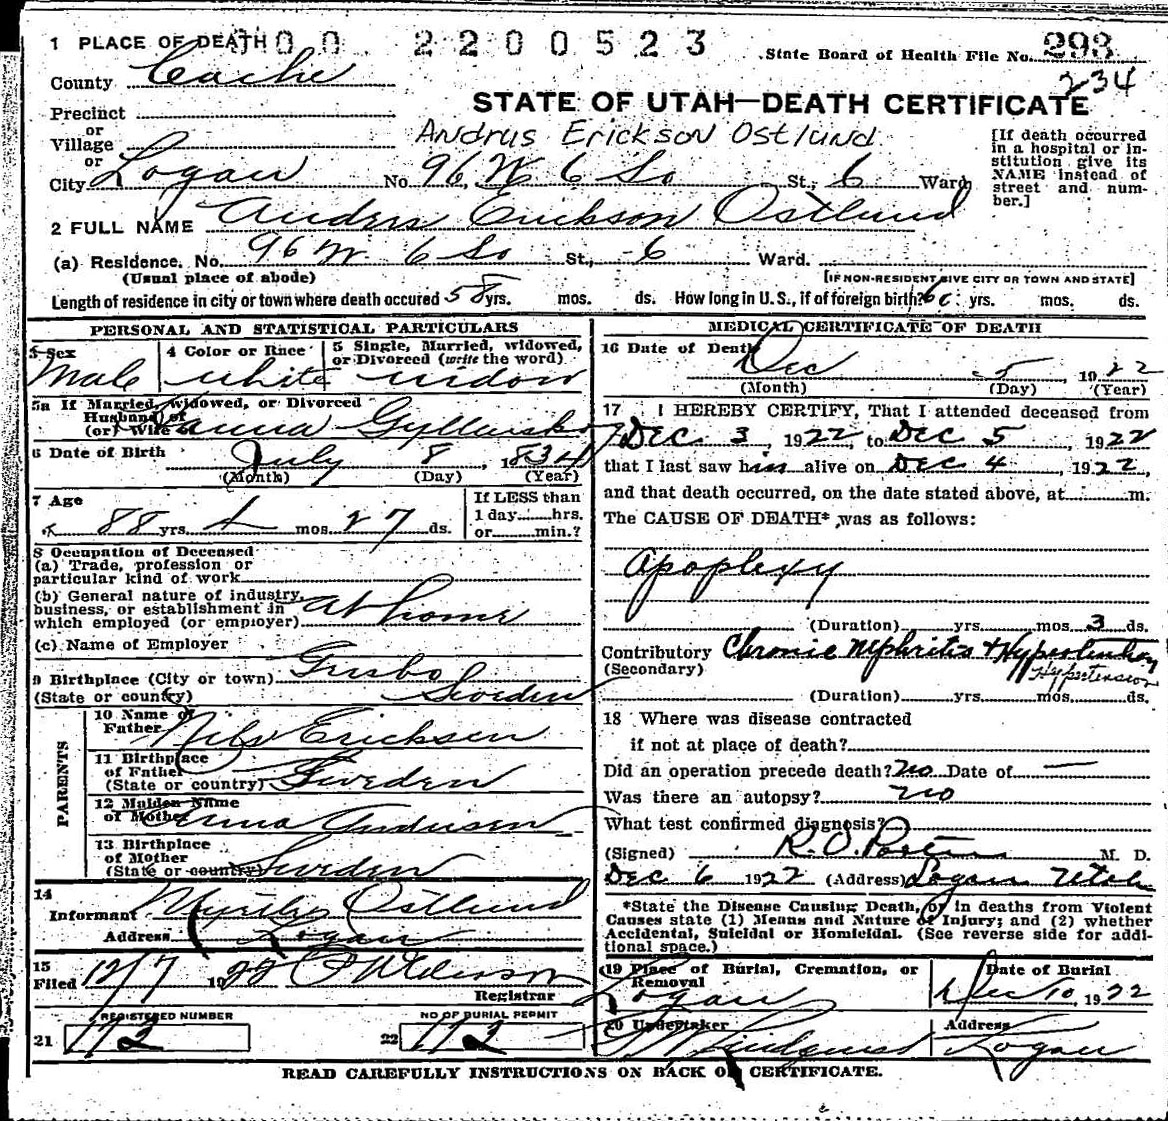 1 PLACE OF DEATH 00 2200523
State Board of Health File No. 293
County Cache 234
STATE OF UTAH—DEATH CERTIFICATE
Precinct
or
Village
or
Andrus Erickson Ostlund
[If death occurred in a hospital or institution give its NAME instead of street and number.]
City Logan No. 96 W 6 So St; 6 Ward
2 FULL NAME Anders Erickson Ostlund
(a) Residence. No. 96 W. 6 So St., 6 Ward.
(Usual place of abode) [IF NON-RESIDENT GIVE CITY OR TOWN AND STATE]
Length of residence in city or town where death occured 58 yrs. mos. ds. How long in U.S., if of foreign birth? yrs. mos. ds.
PERSONAL AND STATISTICAL PARTICULARS
3 Sex Male
4 Color or Race white
5 Single, Married, widowed, or Divorced (write the word) widow
5a If Married, widowed, or Divorced
Husband of
(or) Wife of
6 Date of Birth July 8, 1834
(Month) (Day) (Year)
7 Age 88 yrs. 4 mos. 27 ds.
If LESS than
1 day......hrs.
or......min.?
8 Occupation of Deceased
(a) Trade, profession or
particular kind of work
(b) General nature of industry,
business, or establishment in
which employed (or employer) at home
(c) Name of Employer
9 Birthplace (City or town)
(State or country) Sweden
PARENTS
10 Name of
Father Nils Ericksen
11 Birthplace
of Father
(State or country) Sweden
12 Maiden Name
of Mother Anna Andersen
13 Birthplace
of Mother
(State or country) Sweden
14
Informant Ostlund
Address Logan
15
Filed 12/7 1922
Registrar
REGISTERED NUMBER
21 172
NO OF BURIAL PERMIT
22 172
MEDICAL CERTIFICATE OF DEATH
16 Date of Death Dec 5, 1922
(Month) (Day) (Year)
17 I HEREBY CERTIFY, That I attended deceased from
Dec 3, 1922, to Dec 5, 1922
that I last saw him alive on Dec 4, 1922,
and that death occurred, on the date stated above, at......m.
The CAUSE OF DEATH* was as follows:
Apoplexy
(Duration)......yrs......mos. 3 ds.
Contributory Chronic Nephritis & Hypertension
(Secondary) Hypertension
(Duration)......yrs......mos......ds.
18 Where was disease contracted
if not at place of death?
Did an operation precede death? no Date of —
Was there an autopsy? no
What test confirmed diagnosis?
(Signed) R. O. Porter M. D.
Dec 6 1922 (Address) Logan Utah
*State the Disease Causing Death, or in deaths from Violent
Causes state (1) Means and Nature of Injury; and (2) whether
Accidental, Suicidal or Homicidal. (See reverse side for addi-
tional space.)
19 Place of Burial, Cremation, or
Removal Logan
Date of Burial
Dec 10, 1922
20 Undertaker Lindquist
Address Logan
READ CAREFULLY INSTRUCTIONS ON BACK OF CERTIFICATE.